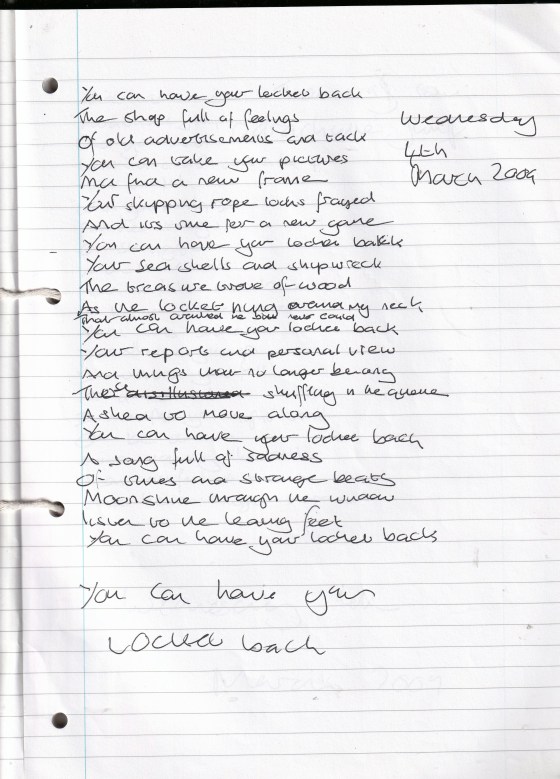 You can have your locket back
The shop full of feelings
Wednesday
Of old advertisements and tack
4th
You can take your pictures
March 2009
And find a new frame
Your skipping rope looks frayed
And its time for a new game
You can have your locket back
Your sea shells and shipwreck
The treasure trove of wood
As the locket hung around my neck
That almost the never could
You can have your locket back
Your reports and personal view
And things that no longer belong
Those shuffling in the queue
Asked to move along
You can have your locket back
A song full of sadness
Of times and strange beats
Moonshine through the window
Listen to the leaving feet
You can have your locket back
You can have your
Locket back